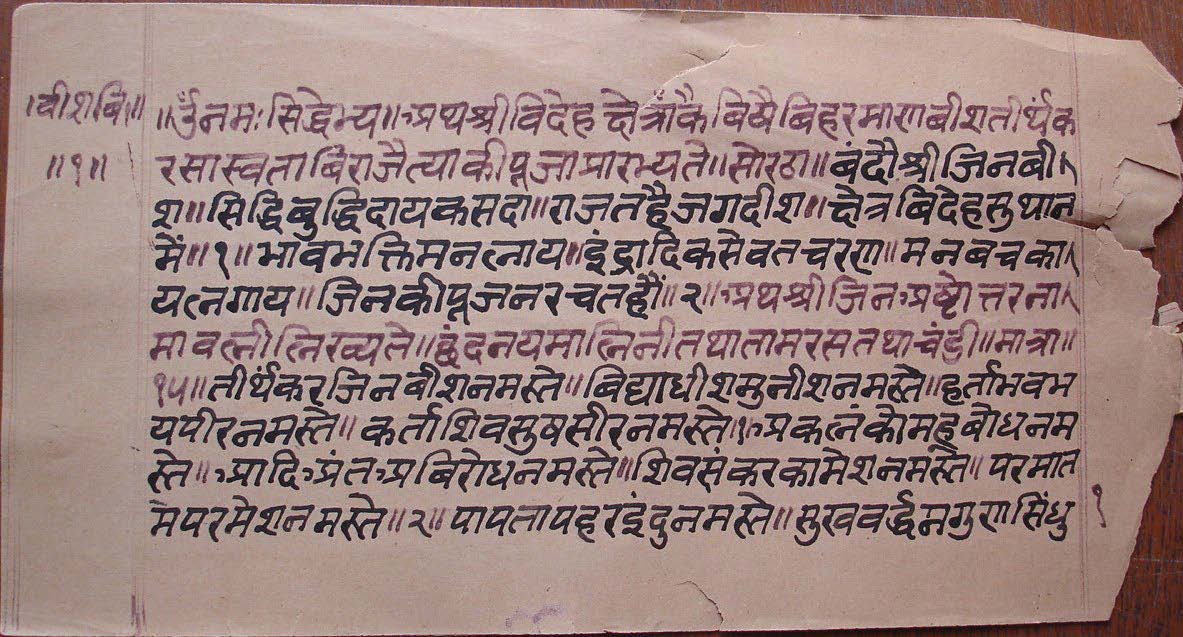 ।वीशबि॥
॥१॥
॥र्उँनमःसिद्धेभ्य॥अथश्रीविदेहक्षेत्रांकैबिषैबिहरमाणबीशतीर्थंक
रसास्वताबिराजैत्याकीपूजाप्रारभ्यते॥सोरठा॥बंदौश्रीजिनबी।
श॥सिद्धिबुद्धिदायकसदा॥राजतहैजगदीश॥क्षेत्रबिदेहसुथान
मैं॥१॥भावभक्तिमनल्याय॥इंद्रादिकसेवतचरण॥मनबचका।
यलगाय॥जिनकीपूजनरचतहौं॥२॥अथश्रीजिनअष्टोत्तरना।
मावलीलिख्यते॥छंदनयमालिनीतथातामरसतथाचंडी॥मात्रा॥
१५॥तीर्थंकरजिनबीशनमस्ते॥बिद्याधीशमुनीशनमस्ते॥हर्ताभवभ
यपीरनमस्ते॥कर्ताशिवसुषसीरनमस्ते॥१॥अकलंकोमहबोधनम
स्ते॥आदिअंतअबिरोधनमस्ते॥शिवसंकरकामेशनमस्ते॥परमात
मपरमेशनमस्ते॥२॥पापतापहरइंदुनमस्ते॥सुखवर्द्धनगुणसिंधु
१